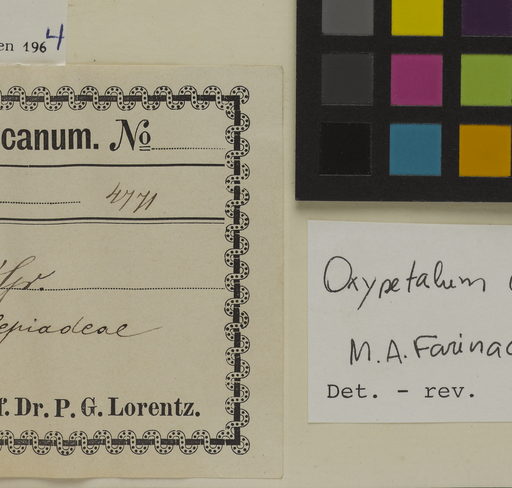 en 1964
canum. No
4771
epiadeae
f. Dr. P. G. Lorentz.
Oxypetalum
M.A. Farinac
Det. - rev.